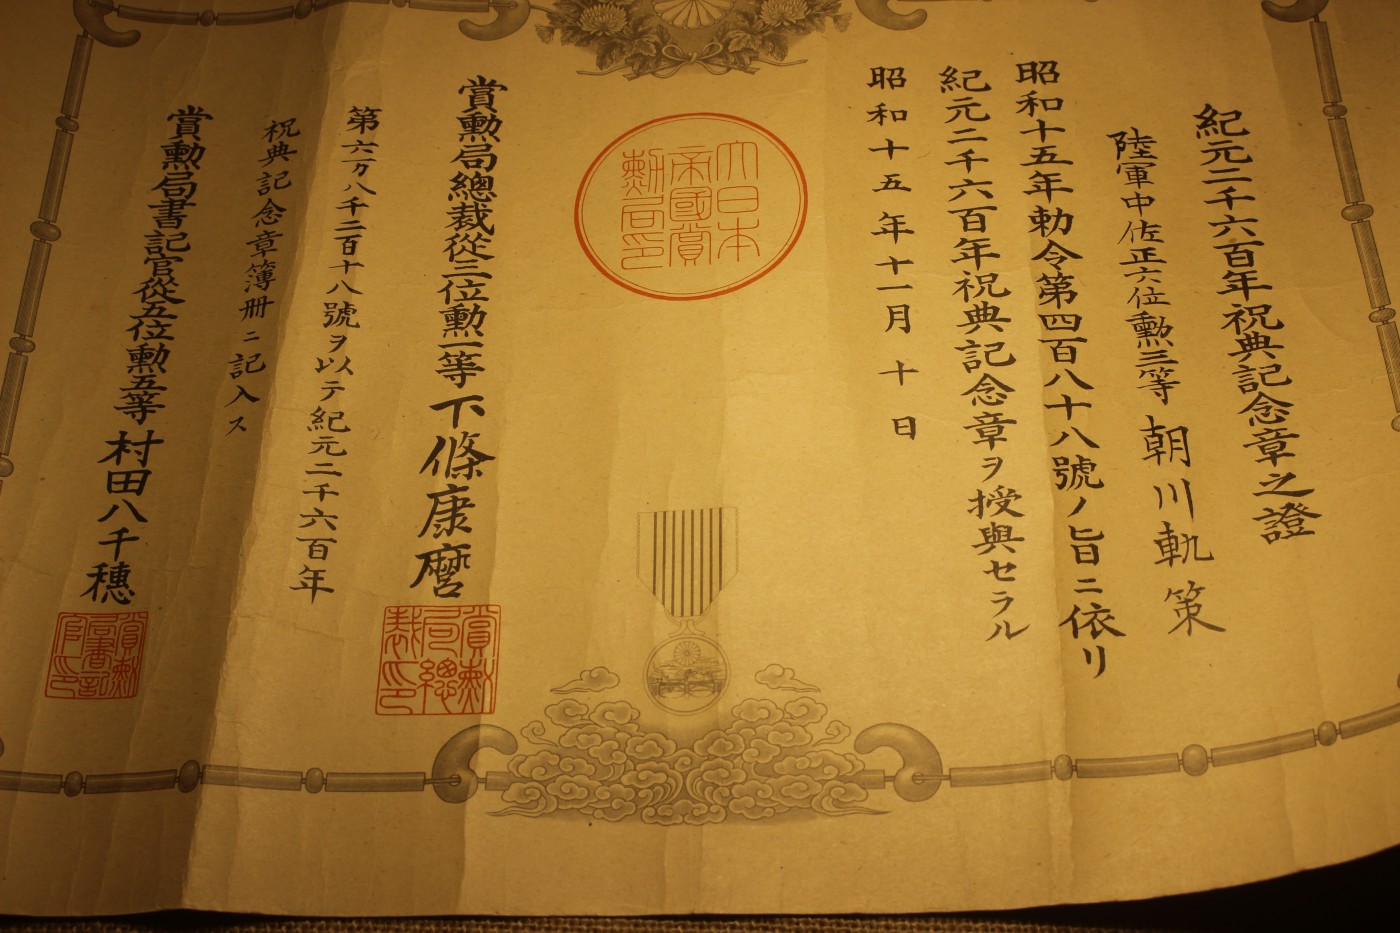 紀元二千六百年祝典記念章之證
陸軍中佐正六位勳三等朝川軌策
昭和十五年勅令第四百八十八號ノ旨ニ依リ
紀元二千六百年祝典記念章ヲ授與セラル
昭和十五年十一月十日
大日本
帝國賞
勳局印
賞勳局總裁從三位勳一等下條康麿
賞勳
局總
裁印
第六万八千二百十八號ヲ以テ紀元二千六百年
祝典記念章簿册ニ記入ス
賞勳局書記官從五位勳五等村田八千穗
賞勳
局書記
官印